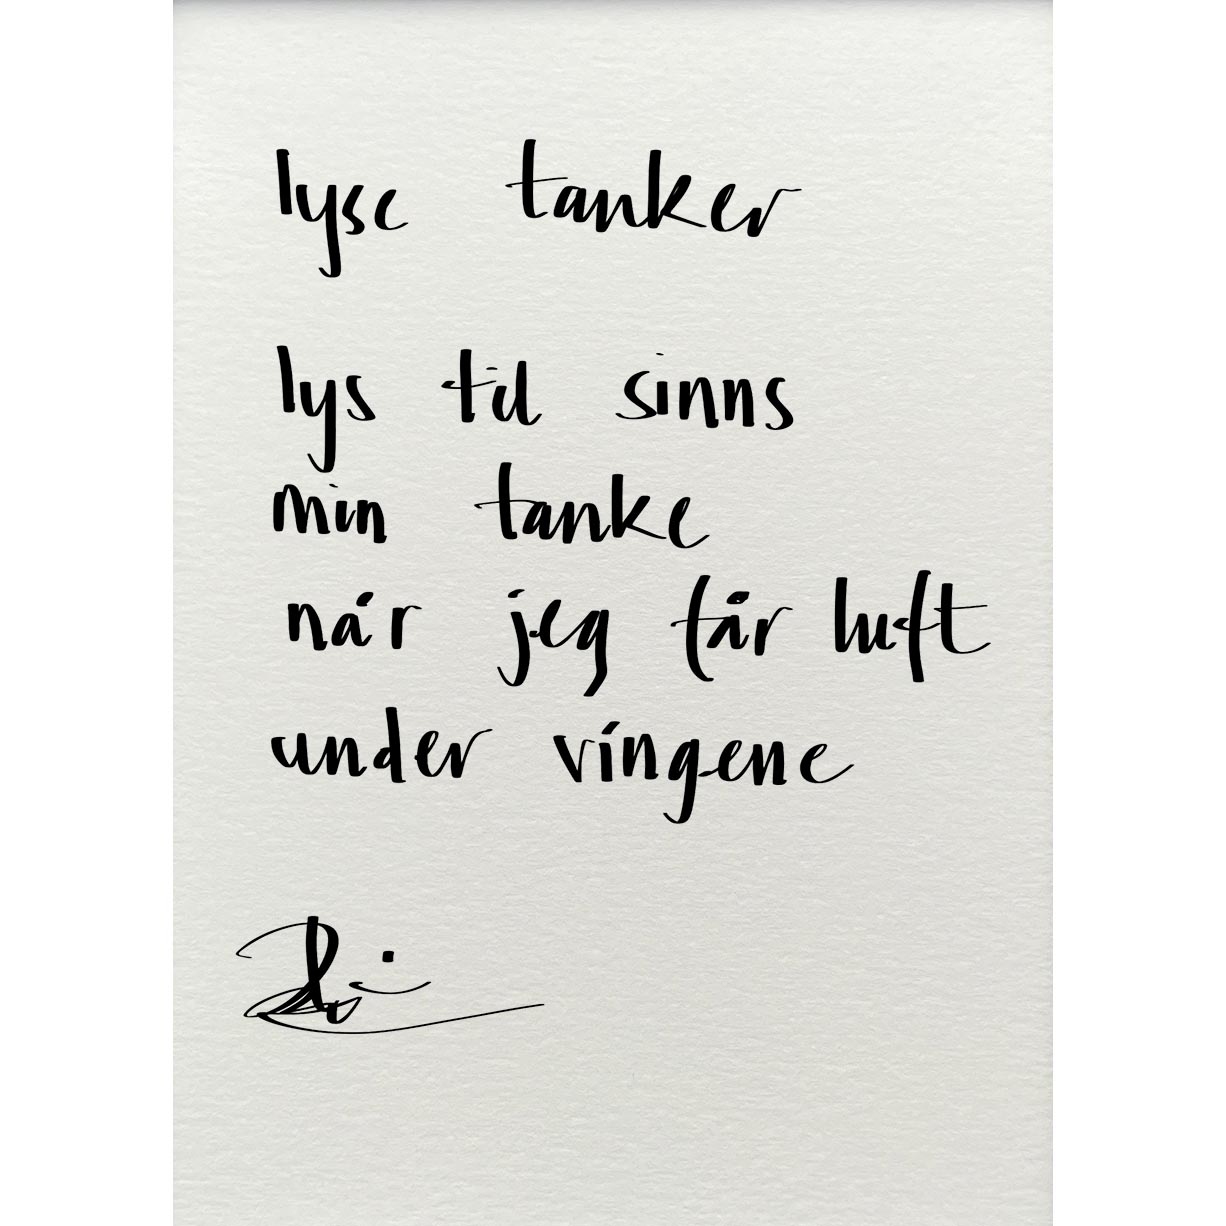 lyse tanker
lys til sinns
min tanke
når jeg får luft
under vingene